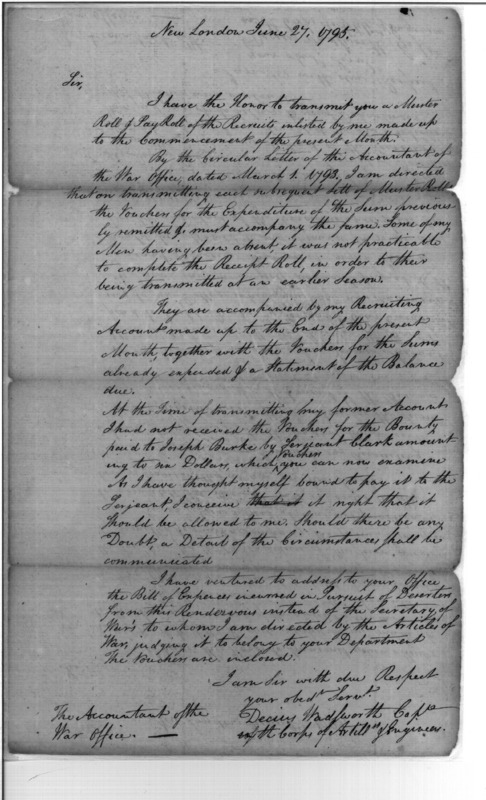 New London June 27. 1795.
Sir,
I have the Honor to transmit you a Muster
Roll & Pay Roll of the Recruits enlisted by me made up
to the Commencement of the present Month.
By the Circular Letter of the Accountant of
the War Office, dated March 1. 1793, I am directed
that on transmitting each subsequent Sett of Muster Rolls
the Vouchers for the Expenditure of the Sum previous-
ly remitted must accompany the same. Some of my
Men having been absent, it was not practicable
to complete the Receipt Roll, in order to their
being transmitted at an earlier Season.
They are accompanied by my Recruiting
Account made up to the End of the present
Month, together with the Vouchers for the Sums
already expended & a Statement of the Balance
due.
At the Time of transmitting my former Account
I had not received the Vouchers for the Bounty
paid to Joseph Burke by Serjeant Clark amount-
ing to Dollars, which Vouchers you can now examine
As I have thought myself bound to pay it to the
Serjeant, I conceive that it it right that it
should be allowed to me. Should there be any
Doubt, a Detail of the Circumstances shall be
communicated
I have ventured to address to your Office
the Bill of Expences incurred in Pursuit of Deserters
from this Rendezvous instead of the Secretary of
War's to whom I am directed by the Articles of
War, judging it to belong to your Department
The Vouchers are inclosed.
I am Sir with due Respect
your obedt. Servt.
Decius Wadsworth Capt.
The Accountant of the
War Office. —
Corps of Artills. & Engineers.